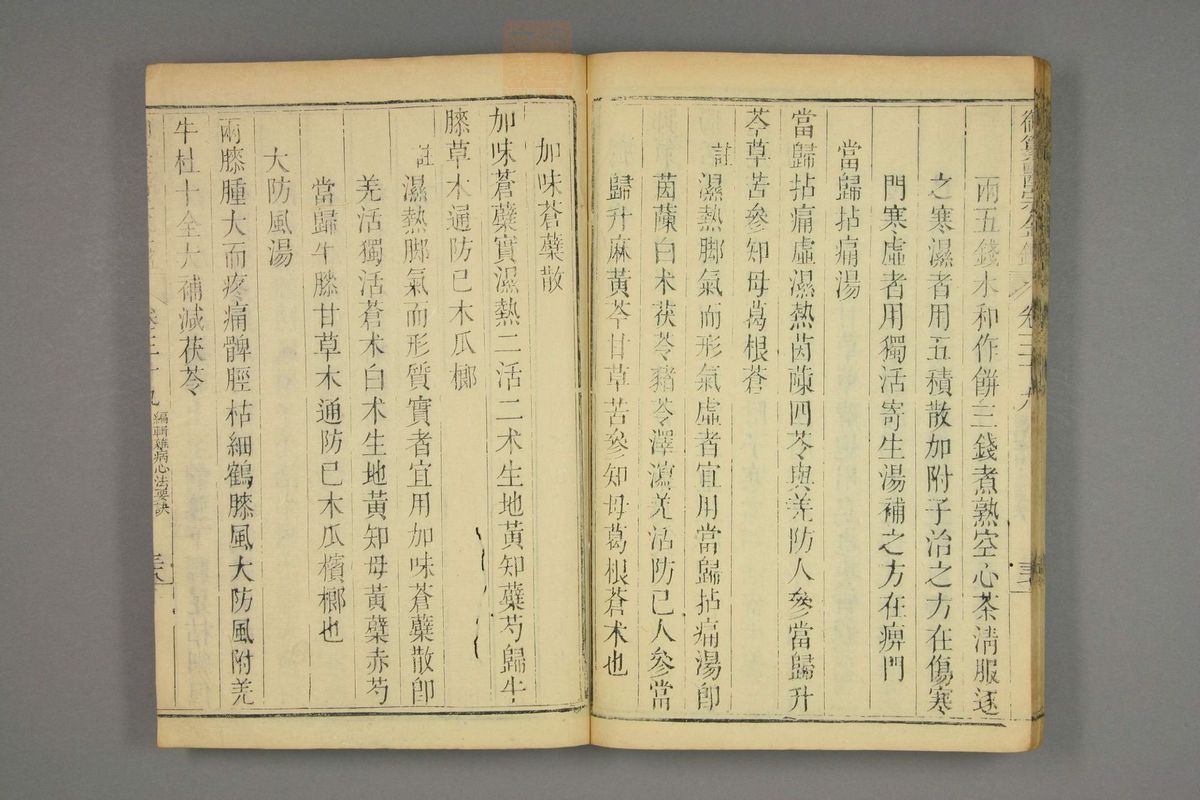 兩五錢水和作餅三錢煮熟空心茶清服逐
之寒濕者用五積散加附子治之方在傷寒
門寒虛者用獨活寄生湯補之方在痹門
當歸拈痛湯
當歸拈痛虛濕熱茵蔯四苓與羌防人參當歸升
芩草苦參知母葛根蒼
註濕熱腳氣而形氣虛者宜用當歸拈痛湯卽
茵蔯白术茯苓豬苓澤瀉羌活防已人參當
歸升麻黃芩甘草苦參知母葛根蒼术也
加味蒼蘗散
加味蒼蘗實濕熱二活二术生地黃知蘗芍歸牛
膝草木通防已木瓜榔
註濕熱腳氣而形質實者宜用加味蒼蘗散卽
羌活獨活蒼术白术生地黃知母黃蘗赤芍
當歸牛膝甘草木通防已木瓜檳榔也
大防風湯
兩膝腫大而疼痛髀脛枯細鶴膝風大防風附羌
牛杜十全大補減茯苓
編輯雜病心法要訣